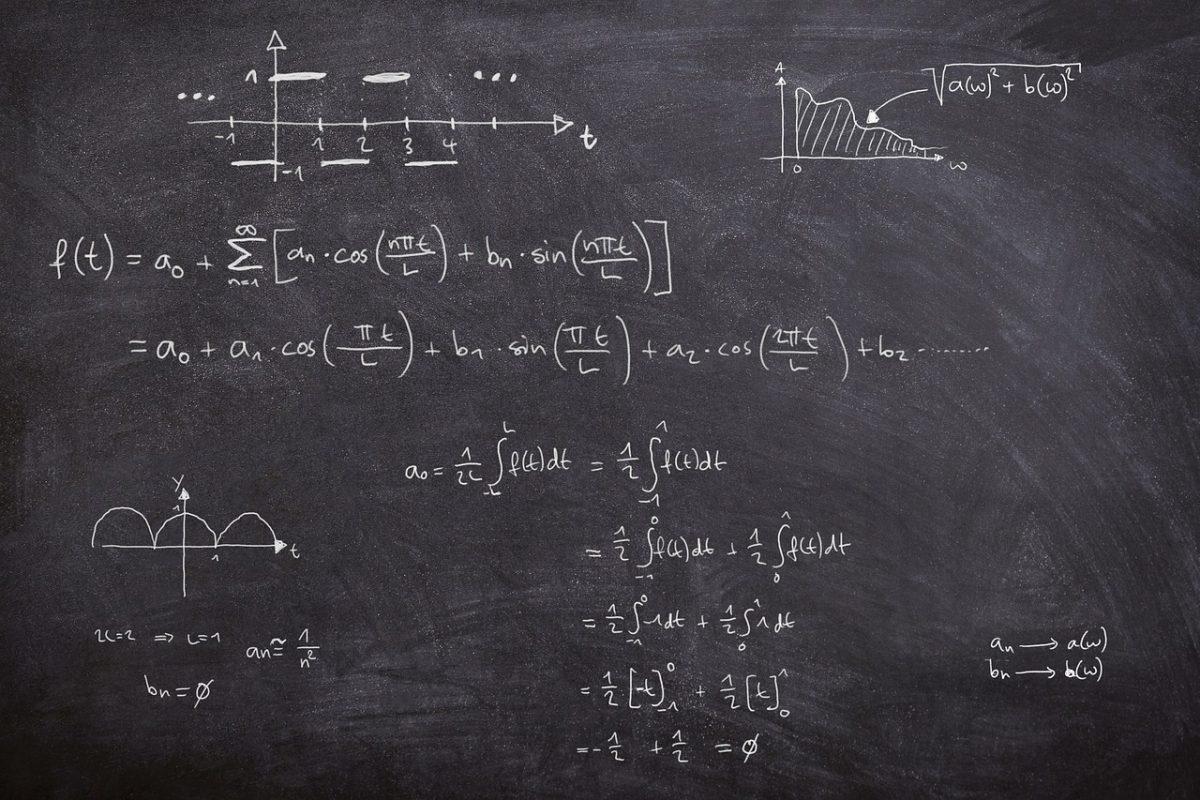 1
...
...
-1 1 2 3 4 t
-1
A
√(a(ω)² + b(ω)²)
0 ω
f(t) = a₀ + ∑ₙ₌₁^∞ [aₙ · cos(nπt/L) + bₙ · sin(nπt/L)]
= a₀ + a₁ · cos(πt/L) + b₁ · sin(πt/L) + a₂ · cos(2πt/L) + b₂ ........
a₀ = 1/2L ∫₋L^L f(t)dt = 1/2 ∫₋₁^1 f(t)dt
= 1/2 ∫₋₁^0 f(t)dt + 1/2 ∫₀^1 f(t)dt
= 1/2 ∫₋₁^0 -1dt + 1/2 ∫₀^1 1dt
= 1/2 [-t]₋₁^0 + 1/2 [t]₀^1
= -1/2 + 1/2 = ∅
y
1
1 t
2L=2 ⇒ L=1
aₙ ≅ 1/n²
bₙ = ∅
aₙ → a(ω)
bₙ → b(ω)